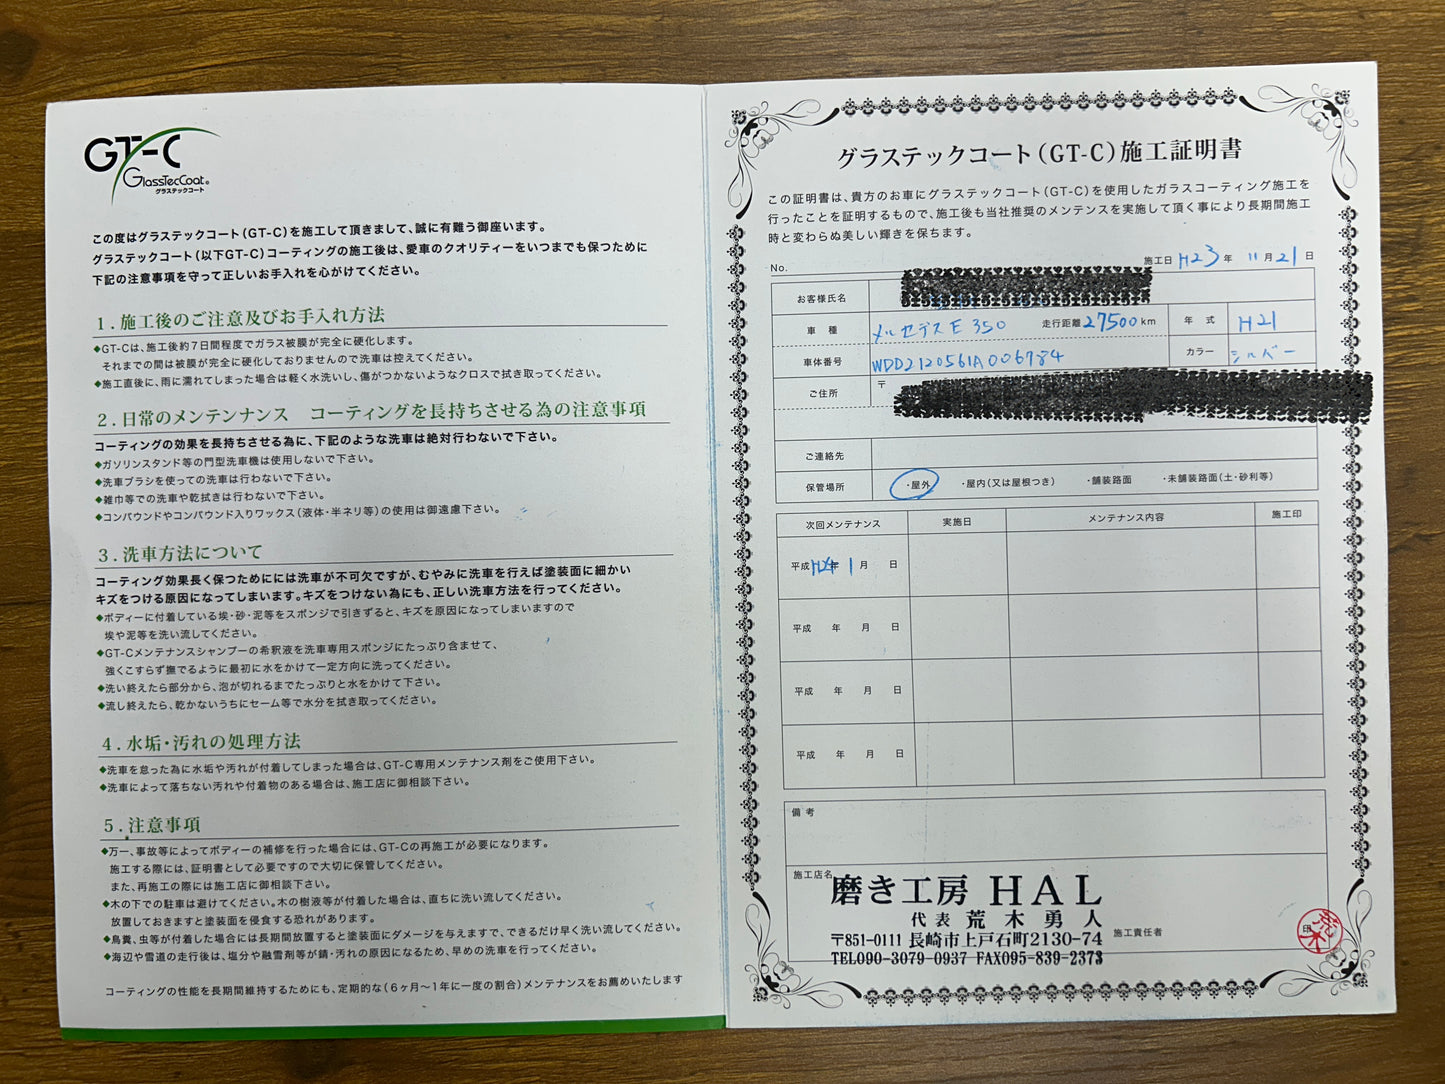 GT-C
GlassTecCoat®
グラステックコート
この度はグラステックコート(GT-C)を施工して頂きまして、誠に有難う御座います。
グラステックコート(以下GT-C)コーティングの施工後は、愛車のクオリティーをいつまでも保つために
下記の注意事項を守って正しいお手入れを心がけてください。
1.施工後のご注意及びお手入れ方法
◆GT-Cは、施工後約7日間程度でガラス被膜が完全に硬化します。
それまでの間は被膜が完全に硬化しておりませんので洗車は控えてください。
◆施工直後に、雨に濡れてしまった場合は軽く水洗いし、傷がつかないようなクロスで拭き取ってください。
2.日常のメンテンナンス コーティングを長持ちさせる為の注意事項
コーティングの効果を長持ちさせる為に、下記のような洗車は絶対行わないで下さい。
◆ガソリンスタンド等の門型洗車機は使用しないで下さい。
◆洗車ブラシを使っての洗車は行わないで下さい。
◆雑巾等での洗車や乾拭きは行わないで下さい。
◆コンパウンドやコンパウンド入りワックス(液体・半ネリ等)の使用は御遠慮下さい。
3.洗車方法について
コーティング効果長く保つためにには洗車が不可欠ですが、むやみに洗車を行えば塗装面に細かい
キズをつける原因になってしまいます。キズをつけない為にも、正しい洗車方法を行ってください。
◆ボディーに付着している埃・砂・泥等をスポンジで引きずると、キズを原因になってしまいますので
埃や泥等を洗い流してください。
◆GT-Cメンテナンスシャンプーの希釈液を洗車専用スポンジにたっぷり含ませて、
強くこすらず撫でるように最初に水をかけて一定方向に洗ってください。
◆洗い終えたら部分から、泡が切れるまでたっぷりと水をかけて下さい。
◆流し終えたら、乾かないうちにセーム等で水分を拭き取ってください。
4.水垢・汚れの処理方法
◆洗車を怠った為に水垢や汚れが付着してしまった場合は、GT-C専用メンテナンス剤をご使用下さい。
◆洗車によって落ちない汚れや付着物のある場合は、施工店に御相談下さい。
5.注意事項
◆万一、事故等によってボディーの補修を行った場合には、GT-Cの再施工が必要になります。
施工する際には、証明書として必要ですので大切に保管してください。
また、再施工の際には施工店に御相談下さい。
◆木の下での駐車は避けてください。木の樹液等が付着した場合は、直ちに洗い流してください。
放置しておきますと塗装面を侵食する恐れがあります。
◆鳥糞、虫等が付着した場合には長期間放置すると塗装面にダメージを与えますで、できるだけ早く洗い流してください。
◆海辺や雪道の走行後は、塩分や融雪剤等が錆・汚れの原因になるため、早めの洗車を行ってください。
コーティングの性能を長期間維持するためにも、定期的な(6ヶ月〜1年に一度の割合)メンテナンスをお薦めいたします
グラステックコート(GT-C)施工証明書
この証明書は、貴方のお車にグラステックコート(GT-C)を使用したガラスコーティング施工を
行ったことを証明するもので、施工後も当社推奨のメンテンスを実施して頂く事により長期間施工
時と変わらぬ美しい輝きを保ちます。
No. 施工日 H23 年 11月21日
お客様氏名
車種 メルセデスE 350 走行距離 27500 km 年式 H21
車体番号 WDD2120561A006784 カラー シルバー
ご住所 〒
ご連絡先
保管場所 ・屋外 ・屋内(又は屋根つき) ・舗装路面 ・未舗装路面(土・砂利等)
次回メンテナンス 実施日 メンテナンス内容 施工印
平成 年 1月 日
平成 年 月 日
平成 年 月 日
平成 年 月 日
備考
施工店名
磨き工房 HAL
代表 荒木勇人
〒851-0111 長崎市上戸石町2130-74 施工責任者 印
TEL090-3079-0937 FAX095-839-2373
荒木